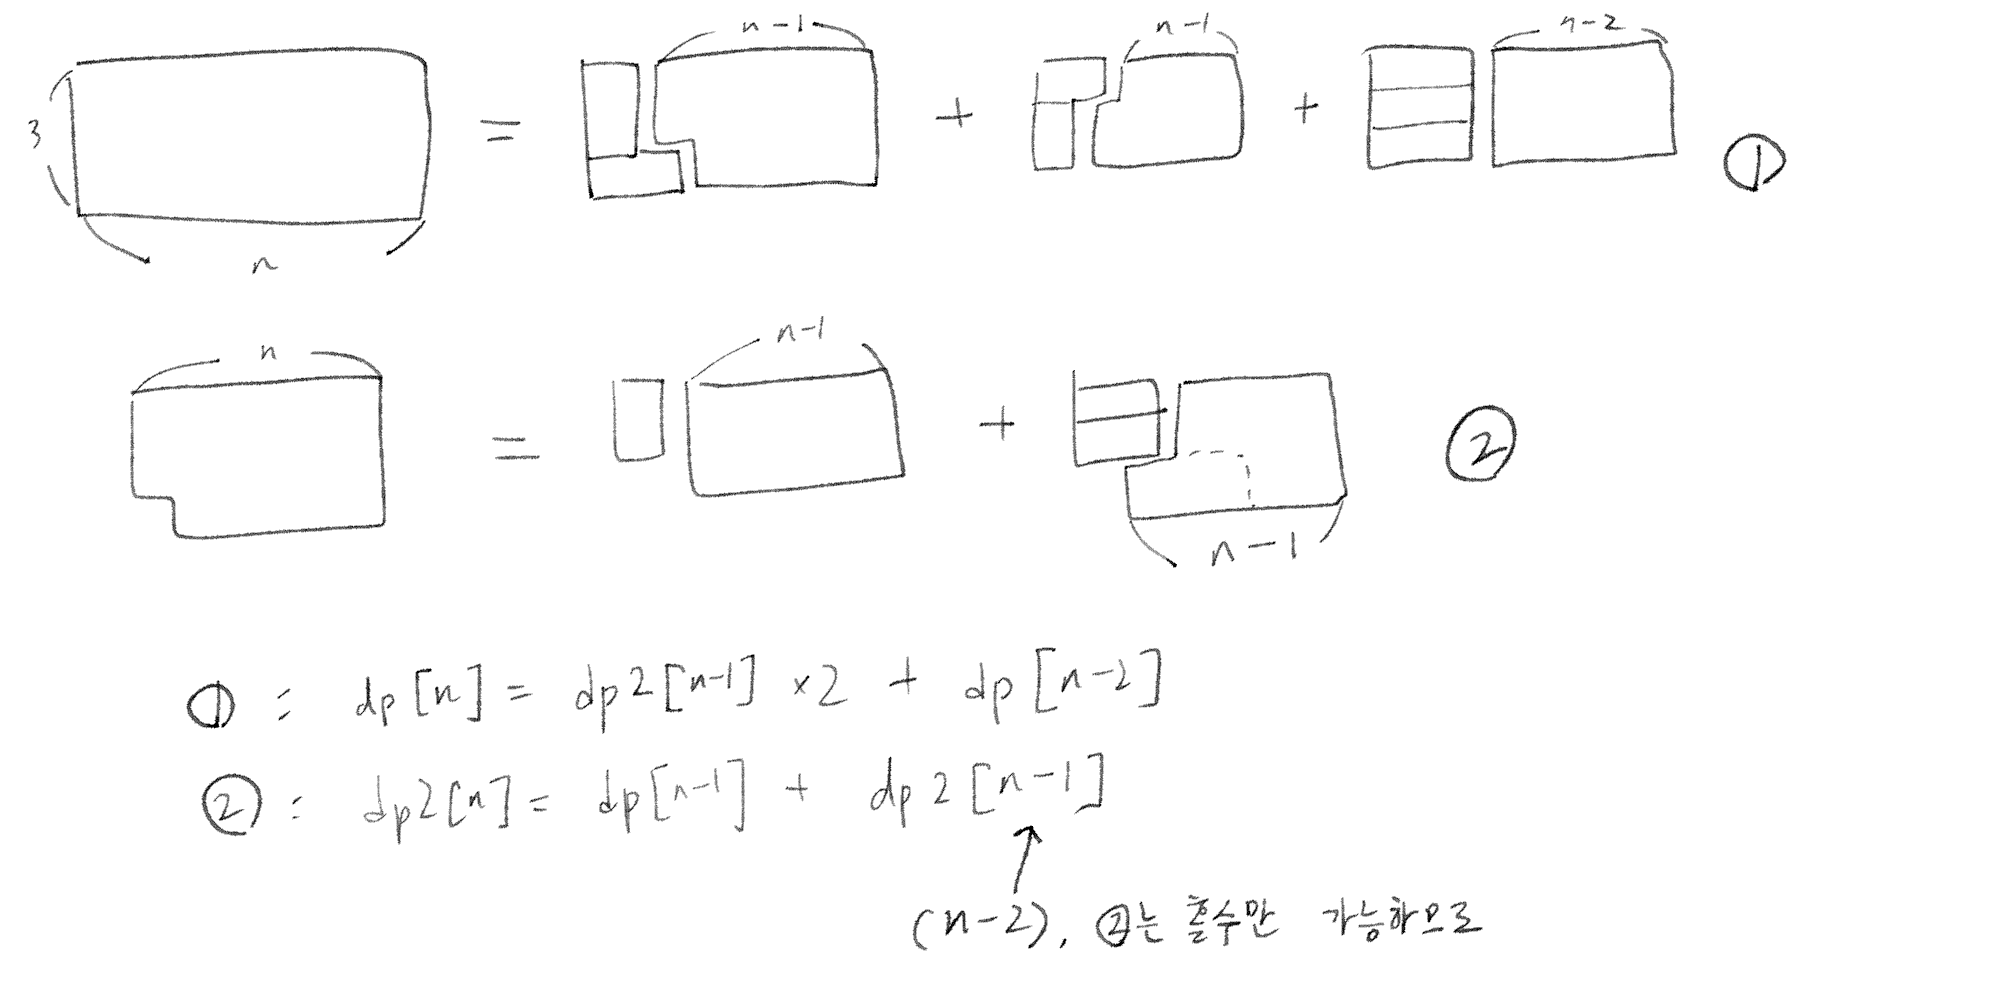 n-1
n-1
n-2
3
=
+
+
①
n
n
n-1
=
+
②
n-1
① : dp[n] = dp2[n-1] ×2 + dp[n-2]
② : dp2[n] = dp[n-1] + dp2[n-1]
(n-2), ②는 홀수만 가능하므로